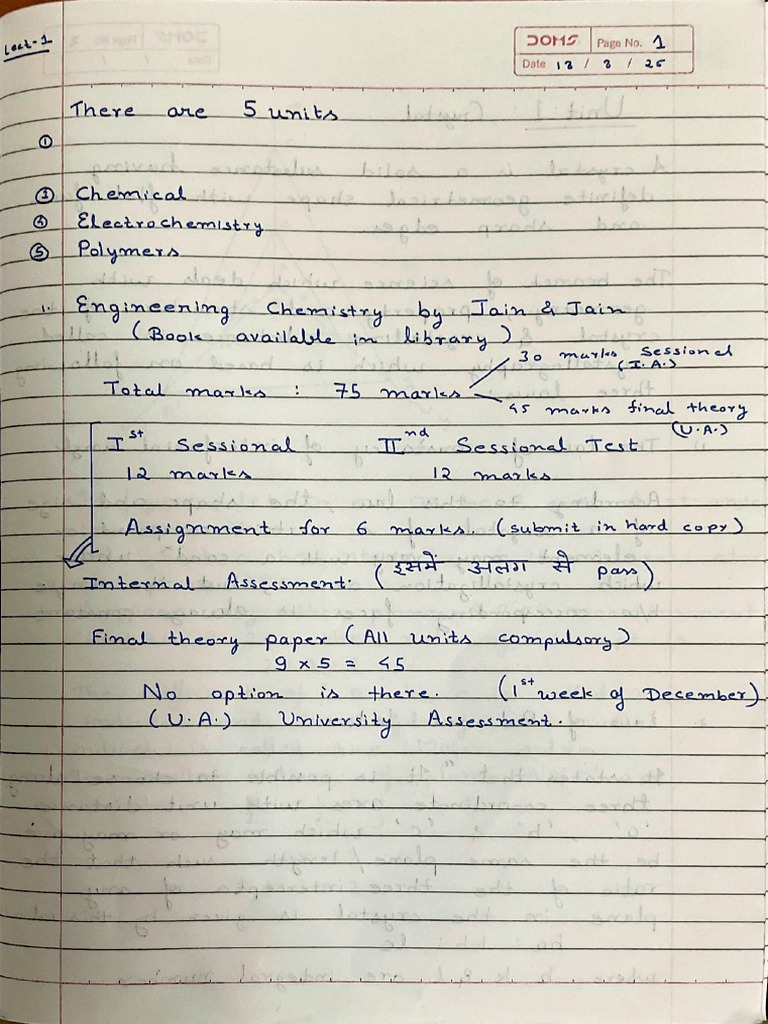 Lect-1
DOMS Page No. 1
Date 13 / 8 / 25
There are 5 units
①
③ Chemical
④ Electrochemistry
⑤ Polymers
1. Engineering Chemistry by Jain & Jain
(Book available in library)
30 marks Sessional
(I.A.)
Total marks : 75 marks
45 marks final theory
(U.A.)
Ist Sessional IInd Sessional Test
12 marks 12 marks
Assignment for 6 marks. (submit in hard copy)
Internal Assessment. (इसमें अलग से pass)
Final theory paper (All units compulsory)
9 x 5 = 45
No option is there. (1st week of December)
(U.A.) University Assessment.